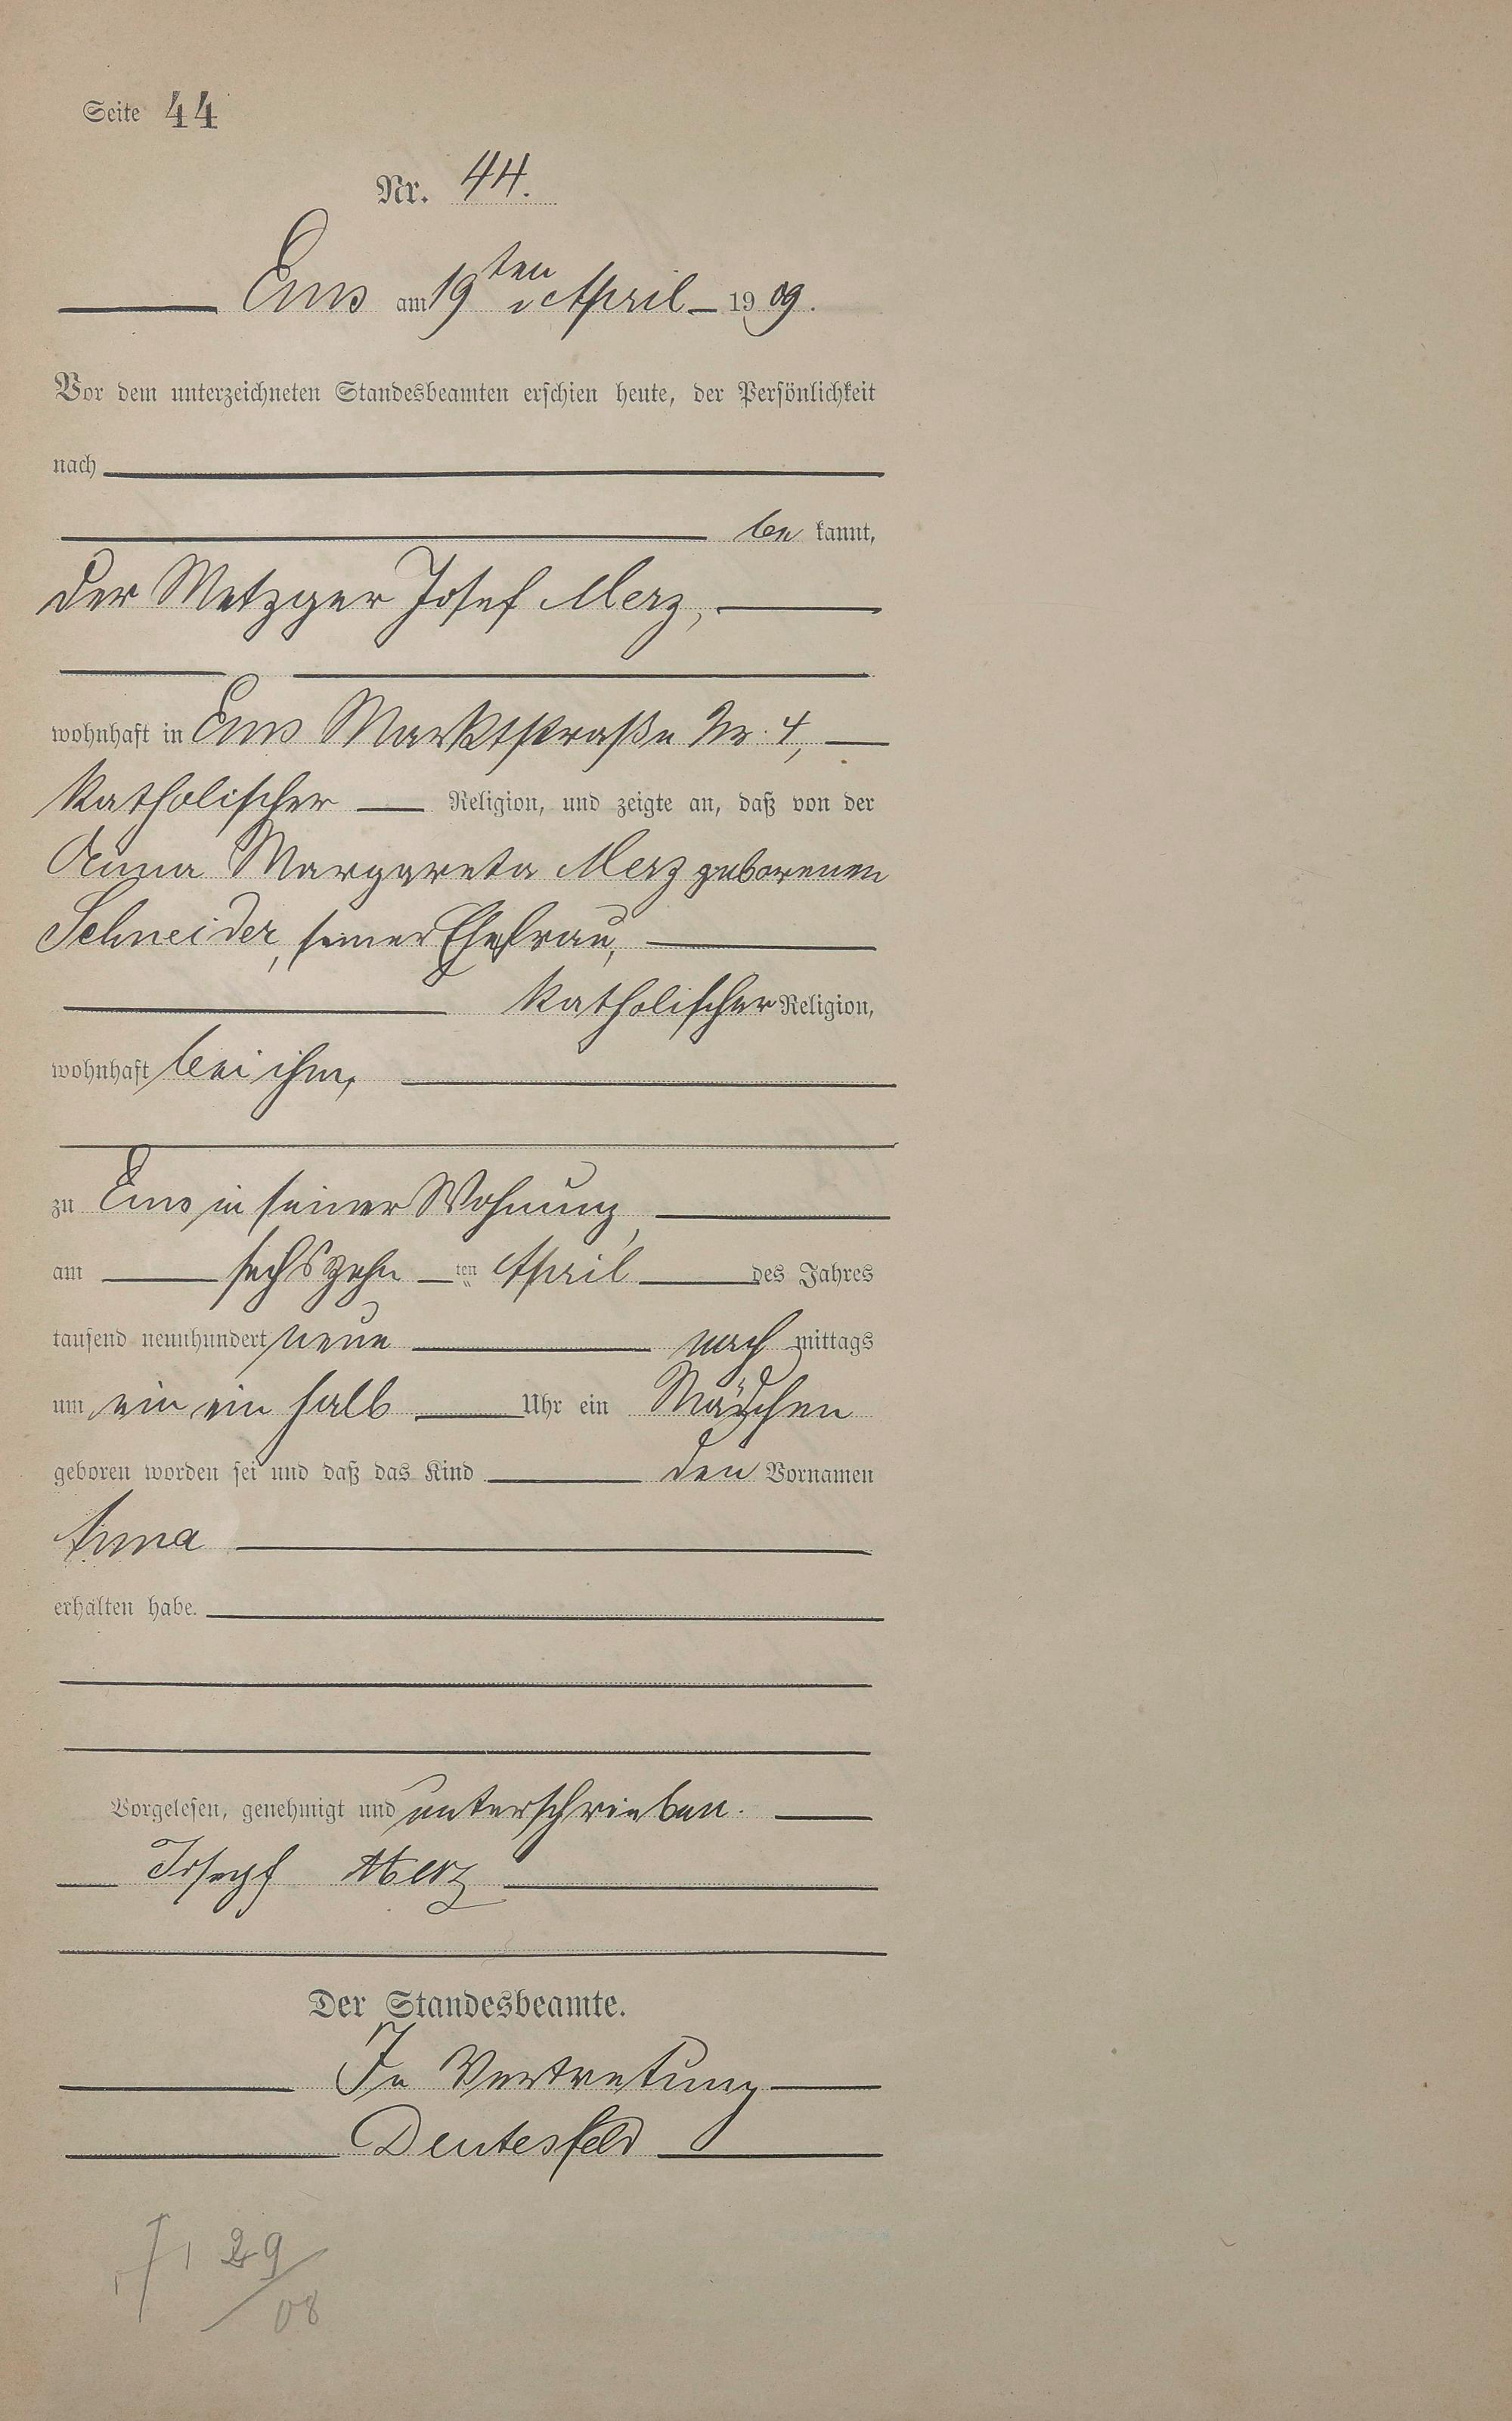 Seite 44
Nr. 44.
Ems am 19ten April 1909.
Vor dem unterzeichneten Standesbeamten erschien heute, der Persönlichkeit
nach
bekannt,
der Metzger Josef Merz,
wohnhaft in Ems Marktstraße Nr. 4,
katholischer Religion, und zeigte an, daß von der
Anna Margareta Merz geborenen
Schneider, seiner Ehefrau,
katholischer Religion,
wohnhaft bei ihm,
zu Ems in seiner Wohnung,
am sechszehnten April des Jahres
tausend neunhundert neun nachmittags
um ein ein halb Uhr ein Mädchen
geboren worden sei und daß das Kind den Vornamen
Anna
erhalten habe.
Vorgelesen, genehmigt und unterschrieben.
Joseph Merz
Der Standesbeamte.
In Vertretung
Deutesfeld
29
08